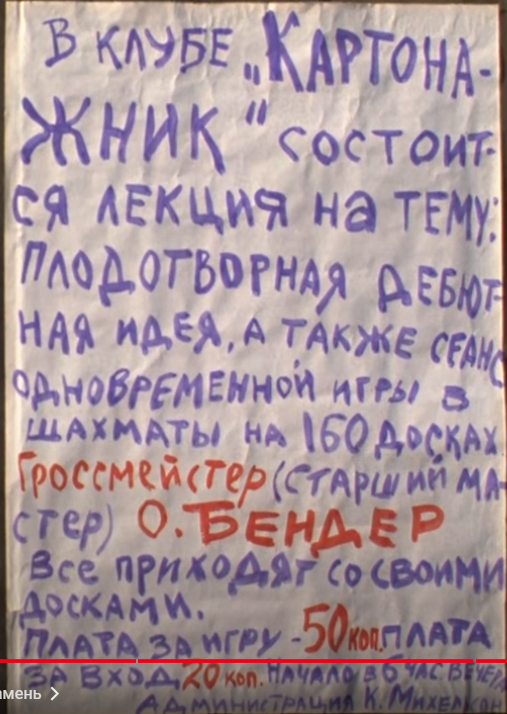 В КЛУБЕ „КАРТОНА-
ЖНИК" состоит-
СЯ ЛЕКЦИЯ НА ТЕМУ:
ПЛОДОТВОРНАЯ ДЕБЮТ-
НАЯ ИДЕЯ, А ТАКЖЕ СЕАНС
ОДНОВРЕМЕННОЙ ИГРЫ В
ШАХМАТЫ НА 160 ДОСКАХ
Гроссмейстер (СТАРШИЙ МА-
стер) О. БЕНДЕР
Все приходят со своими
ДОСКАМИ.
ПЛАТА ЗА ИГРУ - 50 коп. ПЛАТА
ЗА ВХОД 20 коп. НАЧАЛО в 6 ЧАС. ВЕЧЕРА
АДМИНИСТРАЦИЯ К. МИХЕЛЬСОН
амень